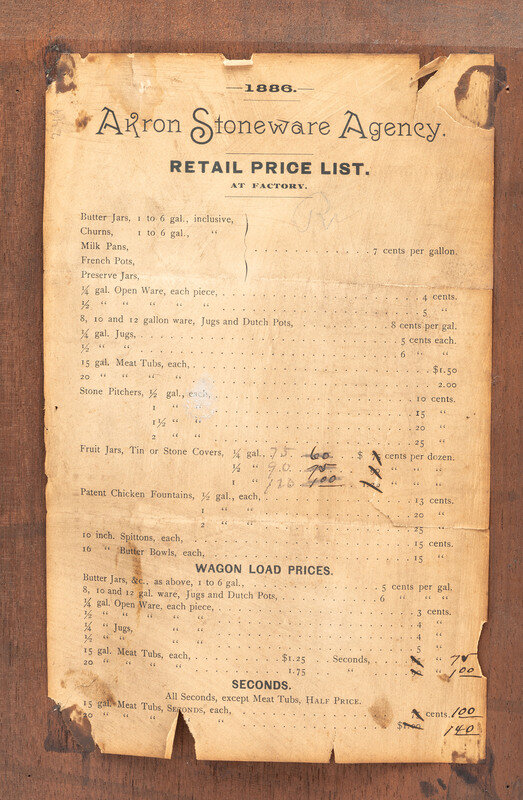 —1886.—
Akron Stoneware Agency.
RETAIL PRICE LIST.
AT FACTORY.
Butter Jars, 1 to 6 gal., inclusive,
Churns, 1 to 6 gal., “
Milk Pans, 7 cents per gallon.
French Pots,
Preserve Jars,
¼ gal. Open Ware, each piece, 4 cents.
½ “ “ “ “ “ 5 “
8, 10 and 12 gallon ware, Jugs and Dutch Pots, 8 cents per gal.
¼ gal. Jugs, 5 cents each.
½ “ “ 6 “ “
15 gal. Meat Tubs, each, $1.50
20 “ “ “ “ 2.00
Stone Pitchers, ½ gal., each, 10 cents.
1 “ “ 15 “
1½ “ “ 20 “
2 “ “ 25 “
Fruit Jars, Tin or Stone Covers, ¼ gal., 75 60 $ cents per dozen.
½ “ 90 75 “ “ “
1 “ 120 100 “ “ “
Patent Chicken Fountains, ½ gal., each, 13 cents.
1 “ “ 20 “
2 “ “ 25 “
10 inch. Spittons, each, 15 cents.
16 “ Butter Bowls, each, 15 “
WAGON LOAD PRICES.
Butter Jars, &c., as above, 1 to 6 gal., 5 cents per gal.
8, 10 and 12 gal. ware, Jugs and Dutch Pots, 6 “ “ “
¼ gal. Open Ware, each piece, 3 cents.
½ “ “ “ “ “ 4 “
¼ “ Jugs, “ “ 4 “
½ “ “ “ “ 5 “
15 gal. Meat Tubs, each, $1.25 Seconds, 75
20 “ “ “ “ 1.75 “ 100
SECONDS.
All Seconds, except Meat Tubs, HALF PRICE.
15 gal. Meat Tubs, SECONDS, each, cents. 100
20 “ “ “ “ “ $1.00 140